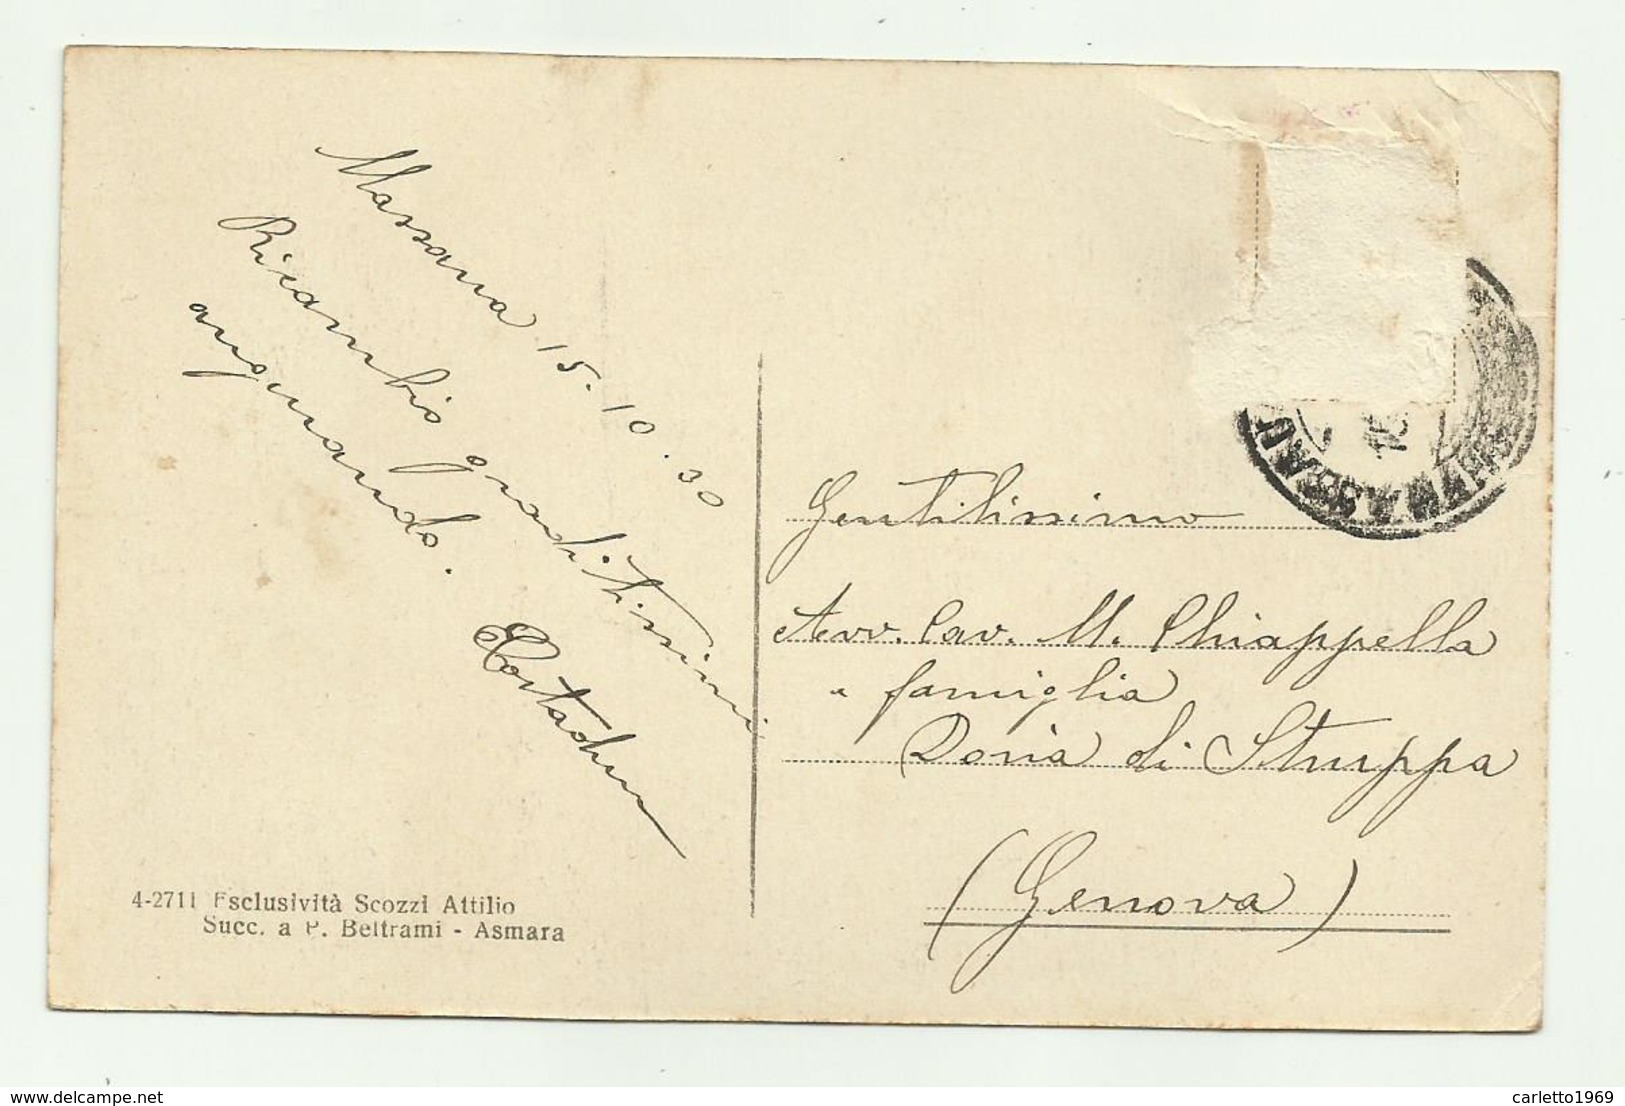 Massaua 15.10.30
Ricambio graditissimi
augurando.
Gentilissimo
Avv. Cav. M. Chiappella
e famiglia
Doria di Struppa
(Genova)
4-2711 Esclusività Scozzi Attilio
Succ. a P. Beltrami - Asmara
delcampe.net
carletto1969